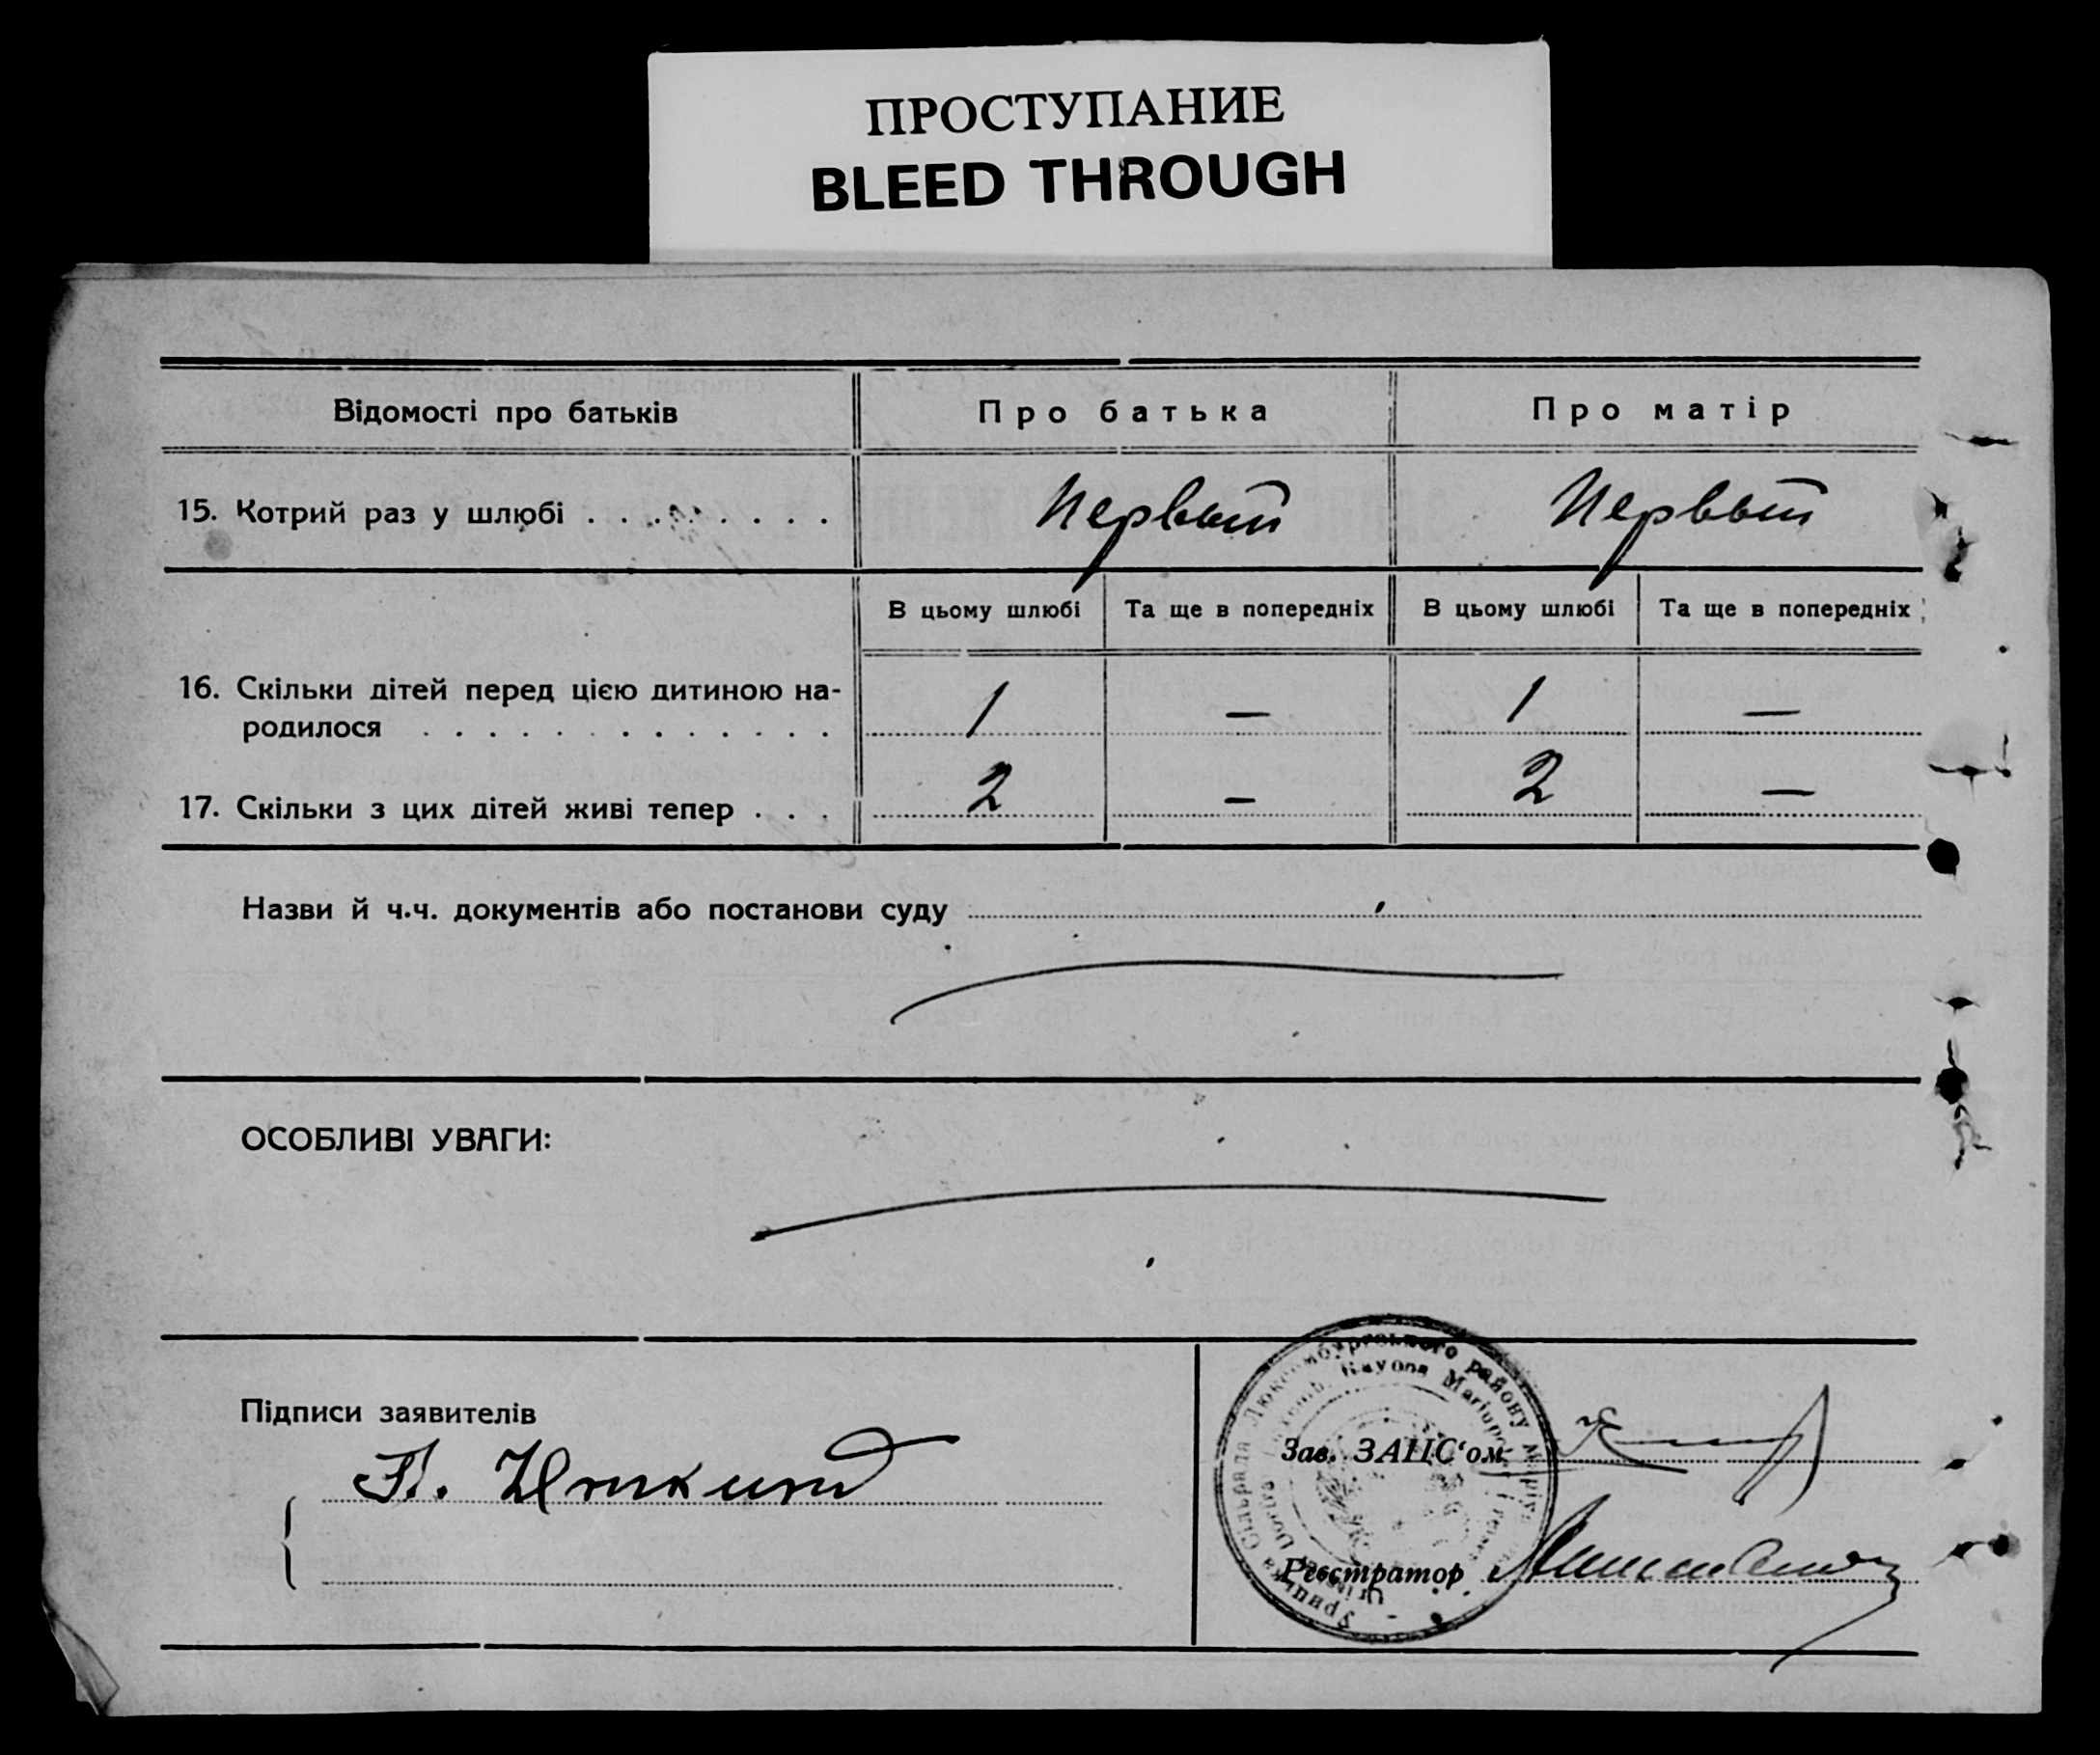 ПРОСТУПАНИЕ
BLEED THROUGH
Відомості про батьків Про батька Про матір
15. Котрий раз у шлюбі . . . . . . . . Первый Первый
В цьому шлюбі Та ще в попередніх В цьому шлюбі Та ще в попередніх
16. Скільки дітей перед цією дитиною на-
родилося . . . . . . . . . . . . . 1 — 1 —
17. Скільки з цих дітей живі тепер . . . 2 — 2 —
Назви й ч.ч. документів або постанови суду
ОСОБЛИВІ УВАГИ:
Підписи заявителів
Люксембургського району
Rayons Mariupol
Зав. ЗАЦС‘ом
Реєстратор